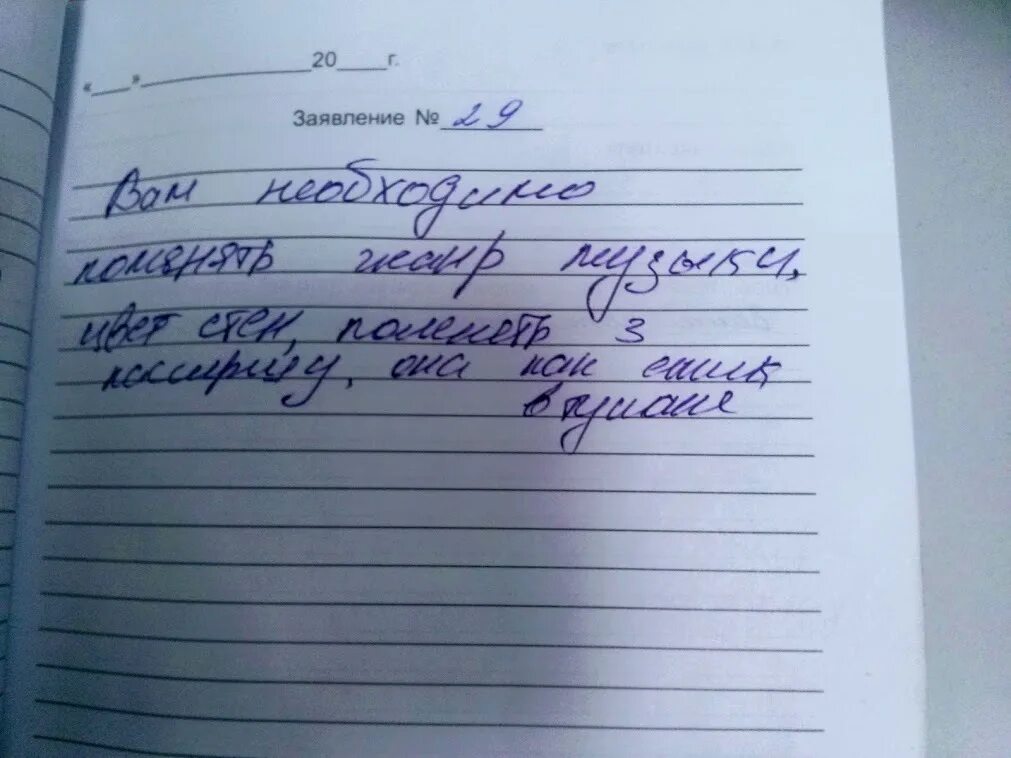 «___»______________20____г.
Заявление № 29
Вам необходимо
поменять жанр музыки,
цвет стен, поменять 3
кассиршу, она как ёжик
в тумане